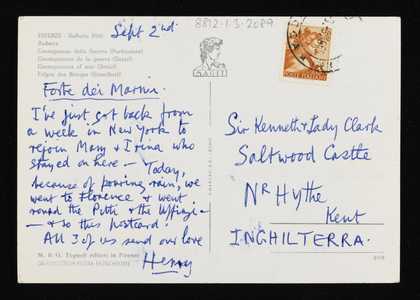 FIRENZE - Galleria Pitti
Rubens
Conseguenze della Guerra (Particolare)
Conséquences de la guerre (Détail)
Consequences of war (Detail)
Folgen des Krieges (Einzelheit)
Sept 2nd.
8812-1-3-2089
SAGIT
POSTE ITALIANE
Forte dei Marmi.
I've just got back from
a week in New York to
rejoin Mary & Irina who
stayed on here — Today,
because of pouring rain, we
went to Florence & went
round the Pitti & the Uffizi —
— & so this postcard!
All 3 of us send our love
Henry
Sir Kenneth & Lady Clark
Saltwood Castle
Nr Hythe
Kent
INGHILTERRA.